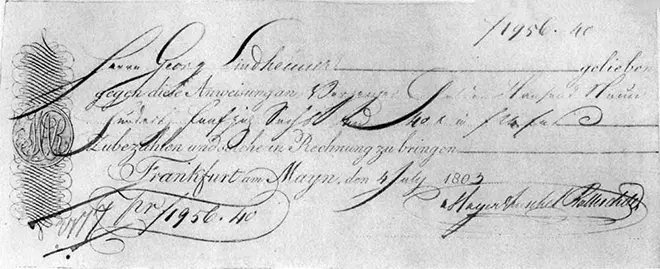 f1956.40
Herrn Georg Lindheimer geliebe
gegen diese Anweisung an Hundert Fünfzig Sechs und 40 x
Zubezahlen und solche in Rechnung zu bringen
Frankfurt am Mayn, den 4 July 1803
pr f1956.40
Mayer Amschel Rothschild